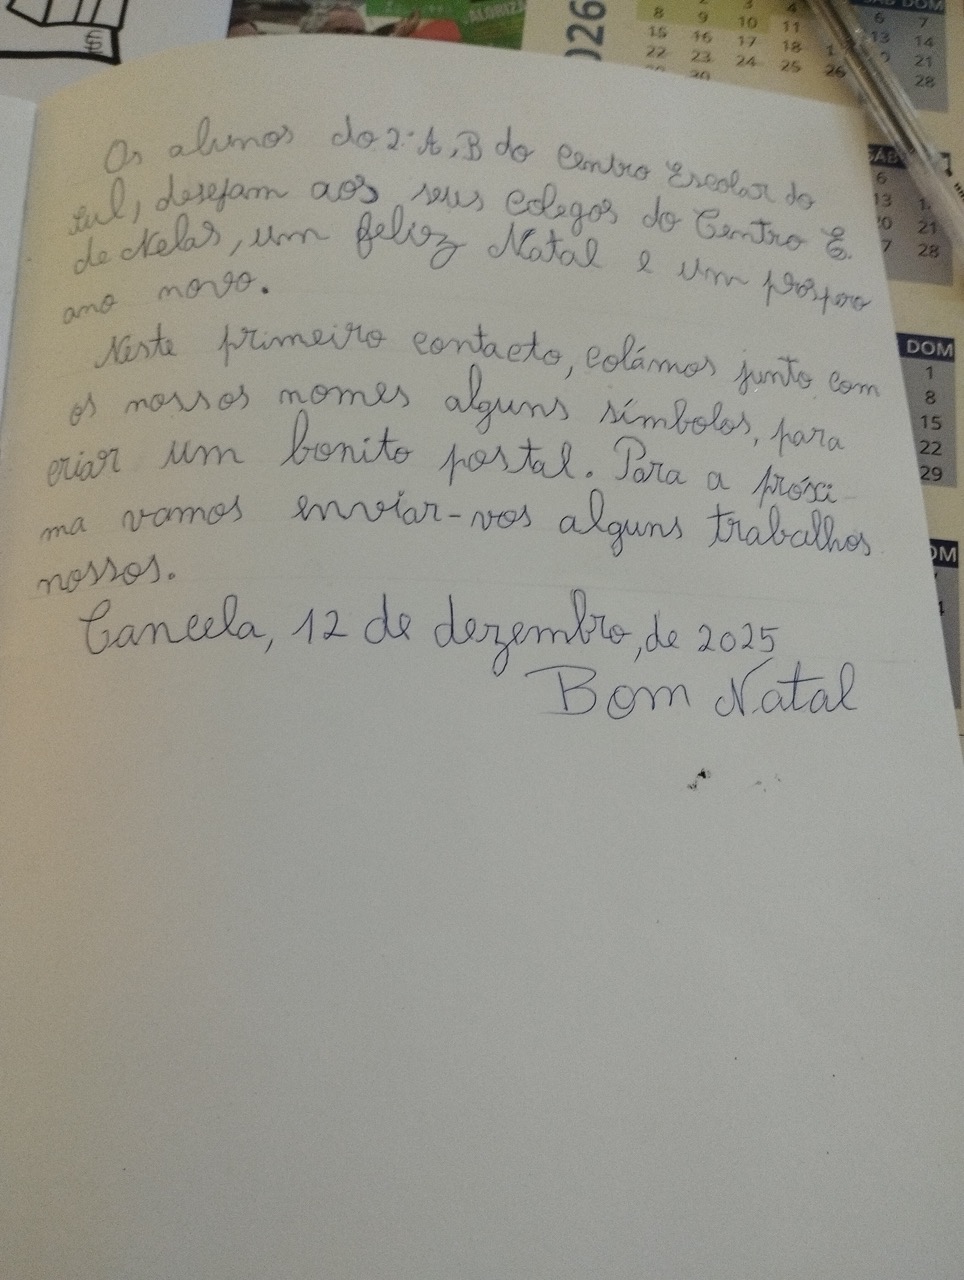 ALORIZA
026
3 4
8 9 10 11
15 16 17 18
22 23 24 25 26
30
DOM
6 7
13 14
21
28
Os alunos do 2.º A, B do Centro Escolar do
sul, desejam aos seus colegos do Centro E.
de Nelas, um feliz Natal e um prospero
ano novo.
Neste primeiro contacto, colámos junto com
os nossos nomes alguns símbolos, para
criar um bonito postal. Para a próxi-
ma vamos enviar-vos alguns trabalhos
nossos.
Cancela, 12 de dezembro, de 2025
Bom Natal
SÁB
6
13
21
28
DOM
1
8
15
22
29
OM